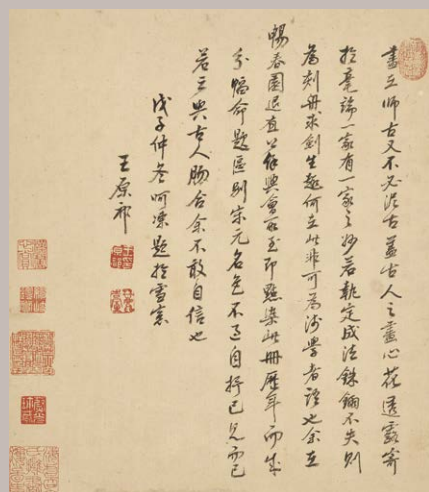 畫立師古又不必泥古蓋古人之靈心花透露寄
於毫端一家有一家之妙若執定成法銖錙不失則
為刻舟求劍生趣何在此非可為淺學者語也余在
暢春園退直公餘興會所至即點染此冊歷年而成
分幅命題區別宋元名色不過自抒己見而已
若云與古人吻合余不敢自信也
戊子仲冬呵凍題於雪窓
王原祁